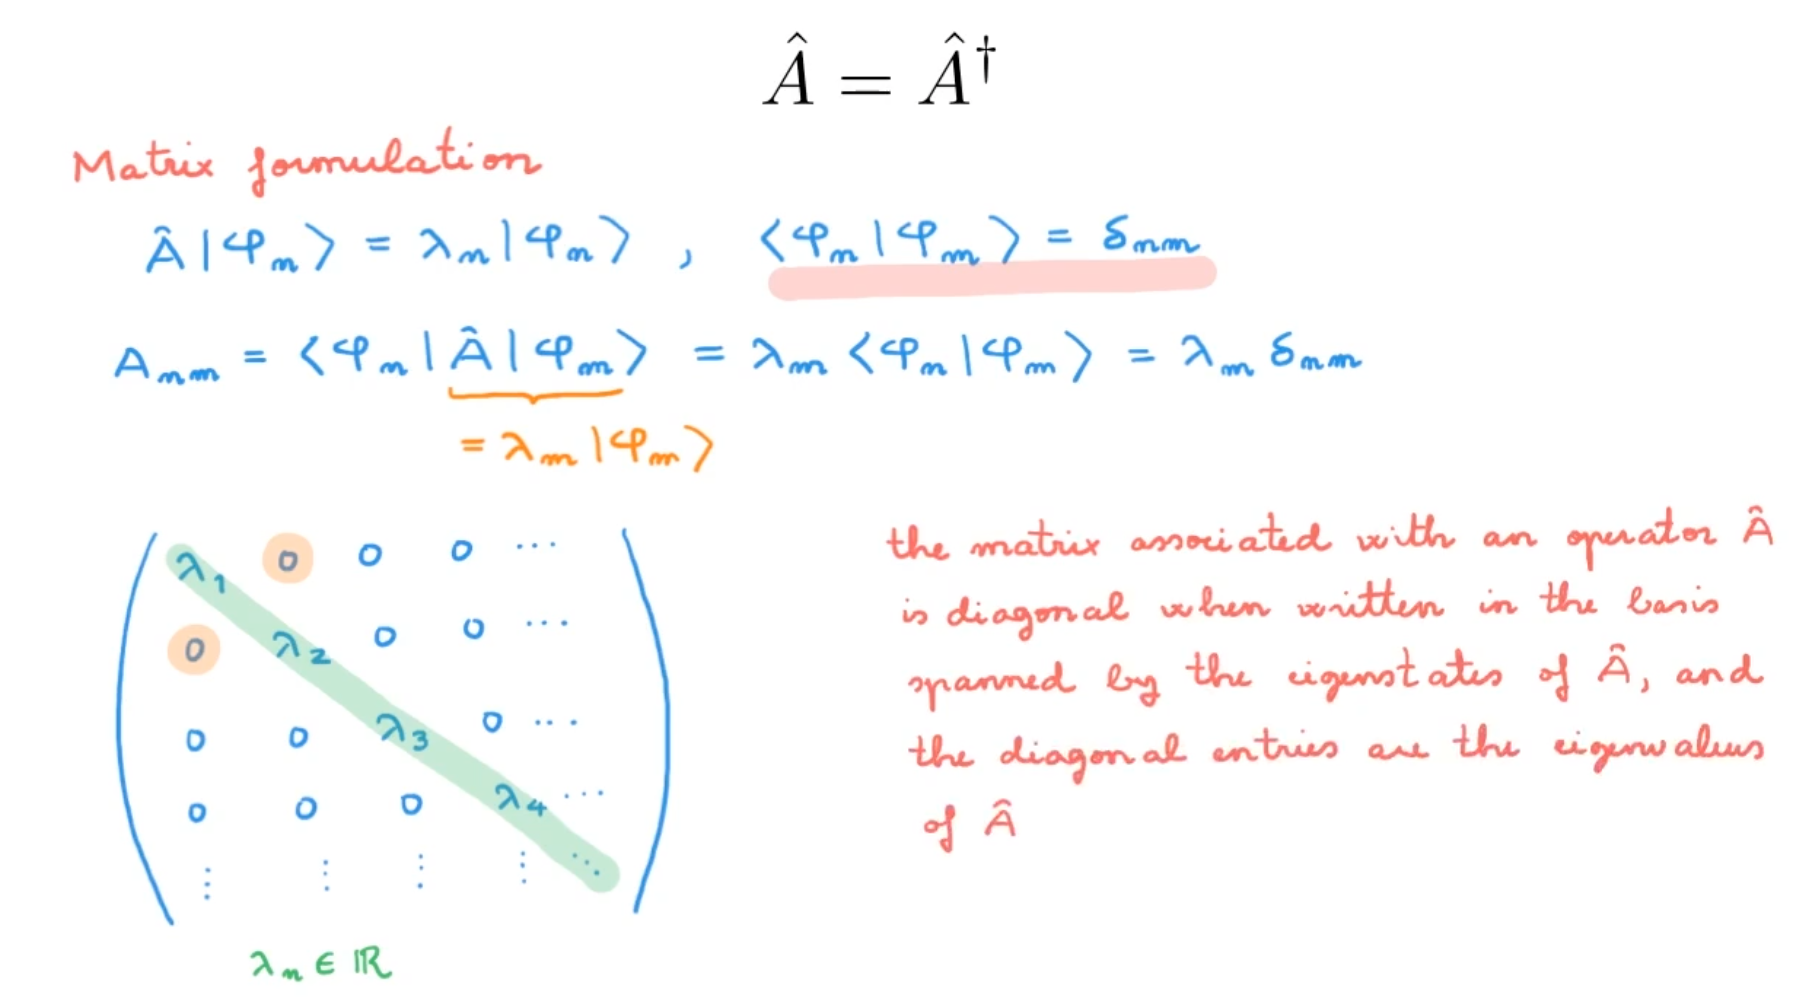 Â = Â†
Matrix formulation
Â|φₙ⟩ = λₙ|φₙ⟩ , ⟨φₙ|φₘ⟩ = δₙₘ
Aₙₘ = ⟨φₙ|Â|φₘ⟩ = λₘ⟨φₙ|φₘ⟩ = λₘ δₙₘ
= λₘ|φₘ⟩
λ₁ 0 0 0 ⋯
0 λ₂ 0 0 ⋯
0 0 λ₃ 0 ⋯
0 0 0 λ₄ ⋯
⋮ ⋮ ⋮ ⋮ ⋱
λₙ ∈ ℝ
the matrix associated with an operator Â
is diagonal when written in the basis
spanned by the eigenstates of Â, and
the diagonal entries are the eigenvalues
of Â